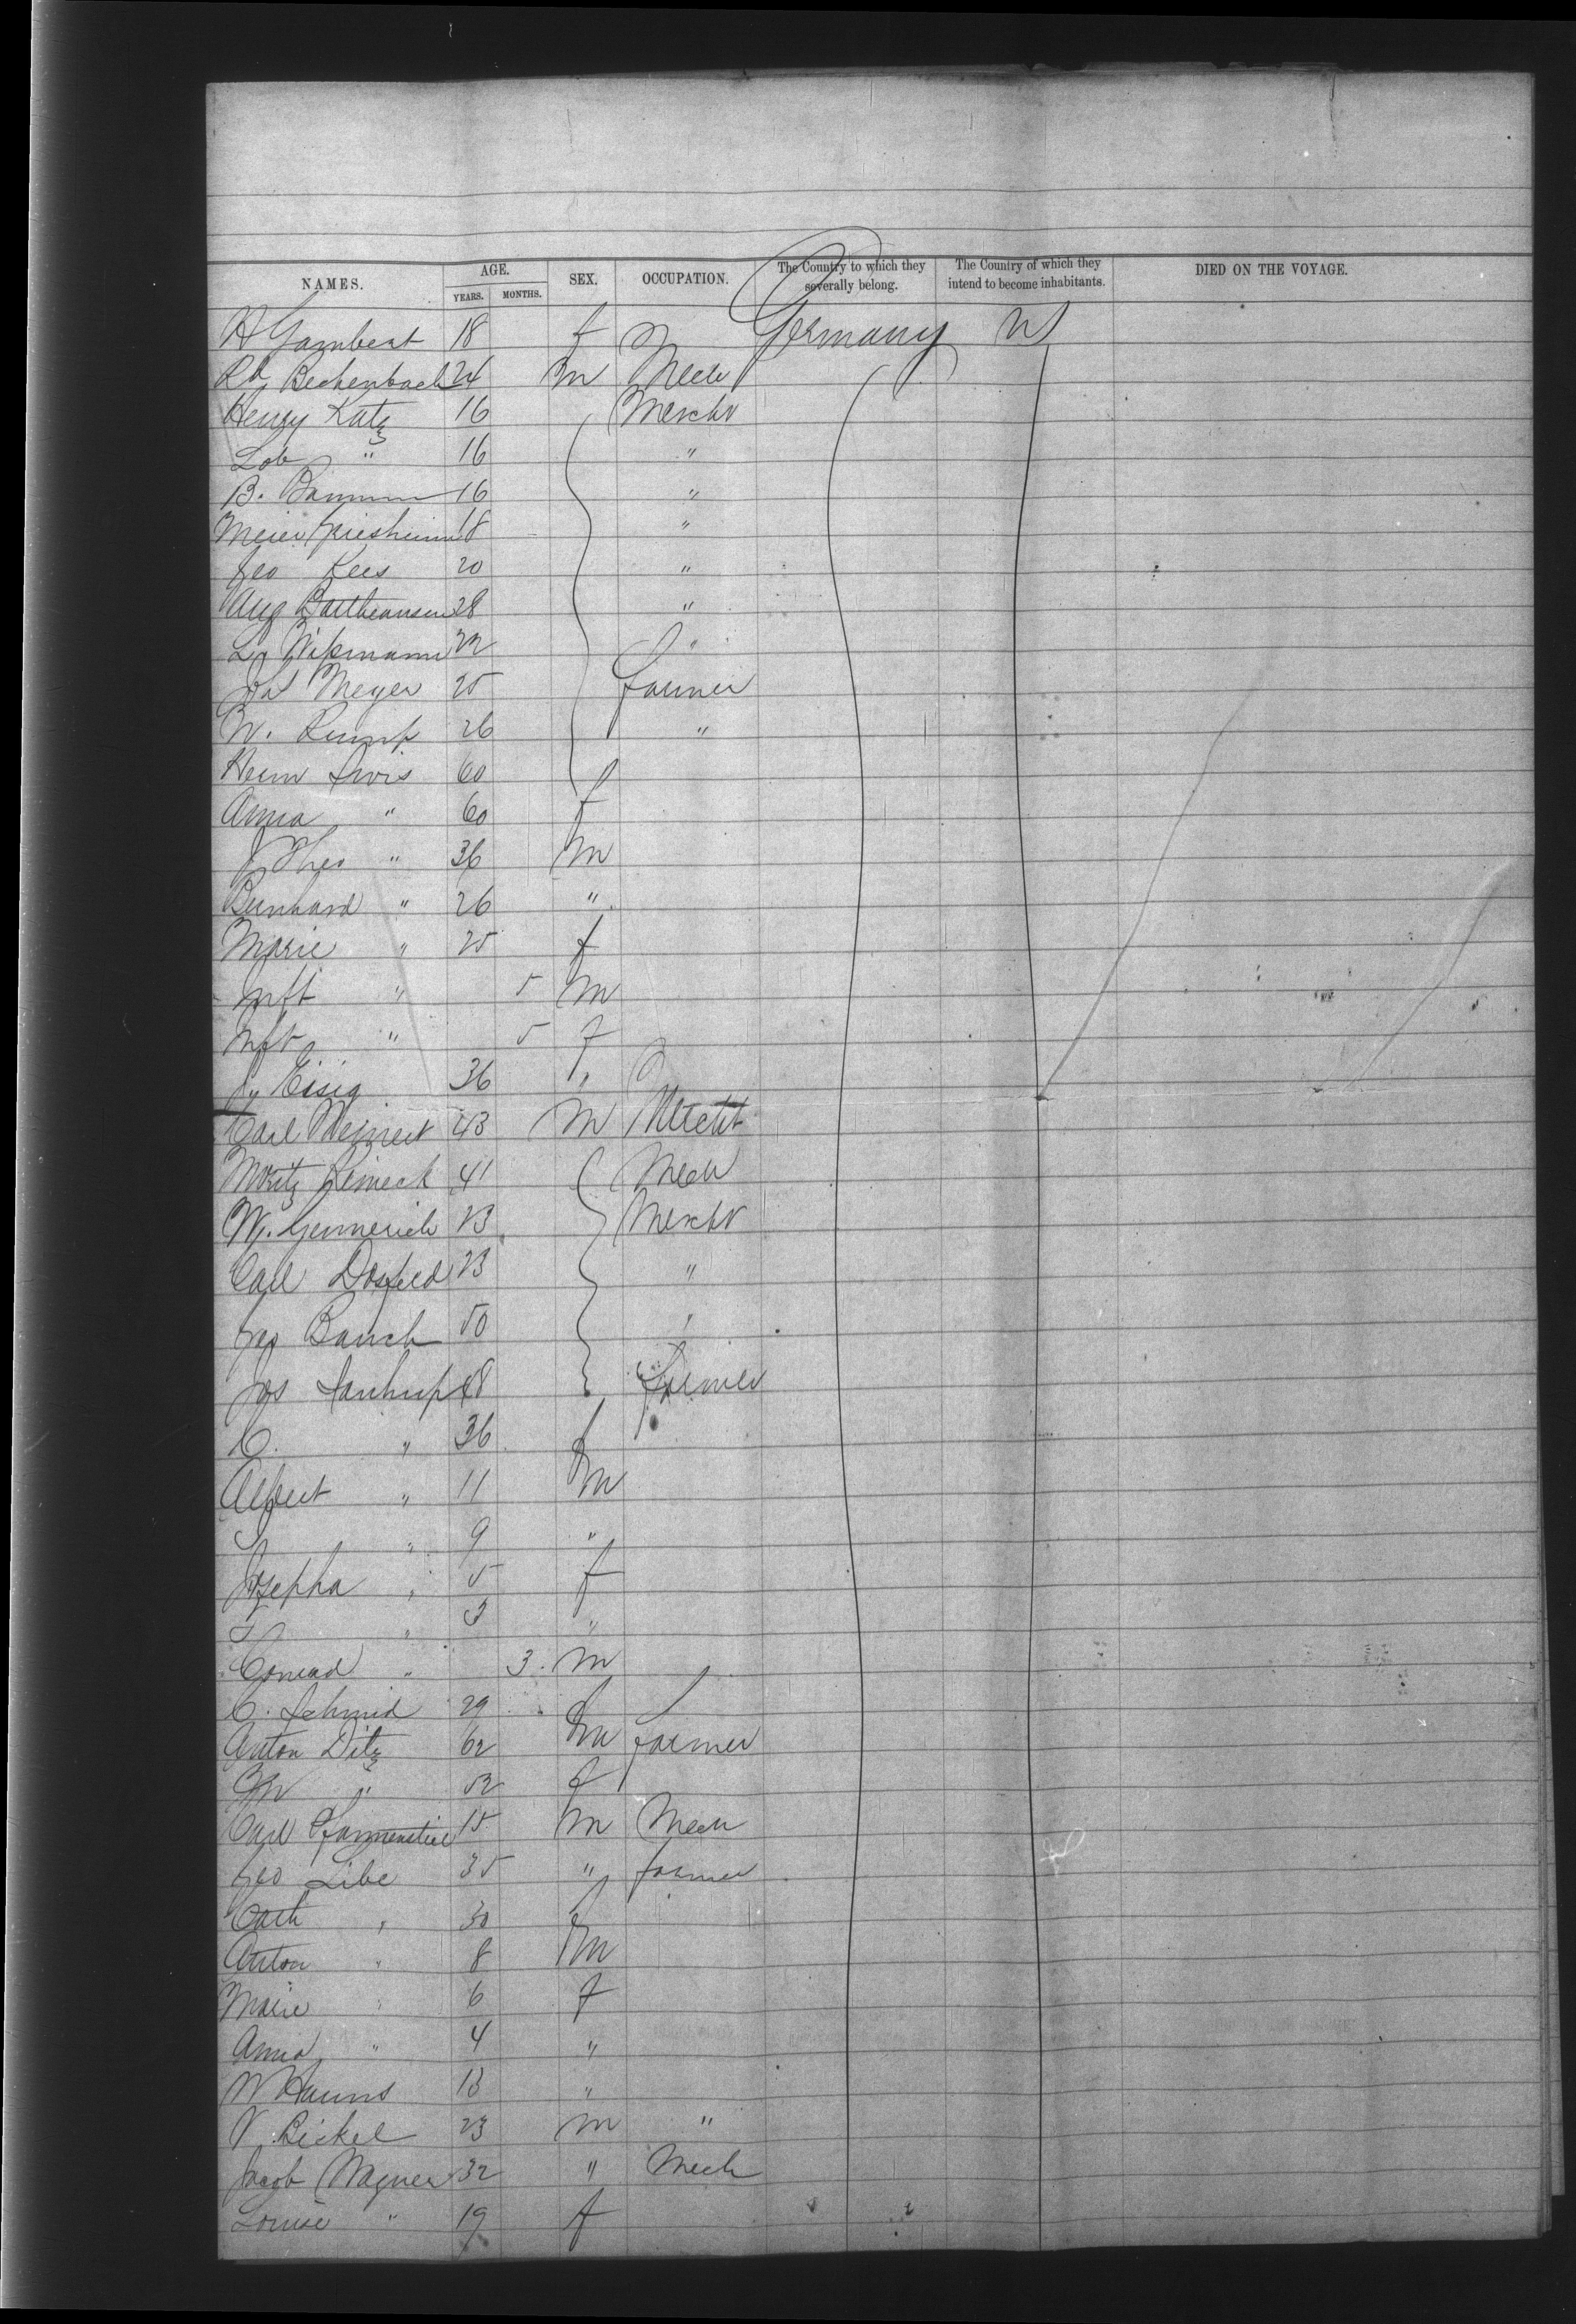 NAMES. AGE. YEARS. MONTHS. SEX. OCCUPATION. The Country to which they severally belong. The Country of which they intend to become inhabitants. DIED ON THE VOYAGE.
H 18 f Germany
Rd Bechenbach 24 m Mech
Henry Katz 16 Mercht
Lob " 16 "
B. 16 "
Meier 18 "
Geo Kees 20 "
Aug 28 "
L. Wißmann 22 "
Meyer 25 farmer
W. Rump 26 "
Herm 60
Anna " 60 f
Theo " 36 m
Bernhard " 26 "
Marie " 25 f
Inft " 5 m
Inft " 5 f
Eisig 36 "
Carl Meinert 43 m
Moritz Reineck 41 Mech
W. Gemmerich 23 Mercht
Carl Dosfeld 23 "
Bauch 50 "
Jos 48 Farmer
C. " 36 f
Albert " 11 m
" 9 "
Josepha " 5 f
" 3 "
Conrad " 3 m
C. Schmid 29 f
Anton Ditz 62 m farmer
" 52 f
Carl Pfannenstiel 15 m Mech
Geo Libe 35 " farmer
Cath " 30 f
Anton " 8 m
Marie " 6 f
Anna " 4 "
W Hauns 13 "
V. Bickel 23 m "
Jacob Wagner 32 " Mech
Louise " 19 f